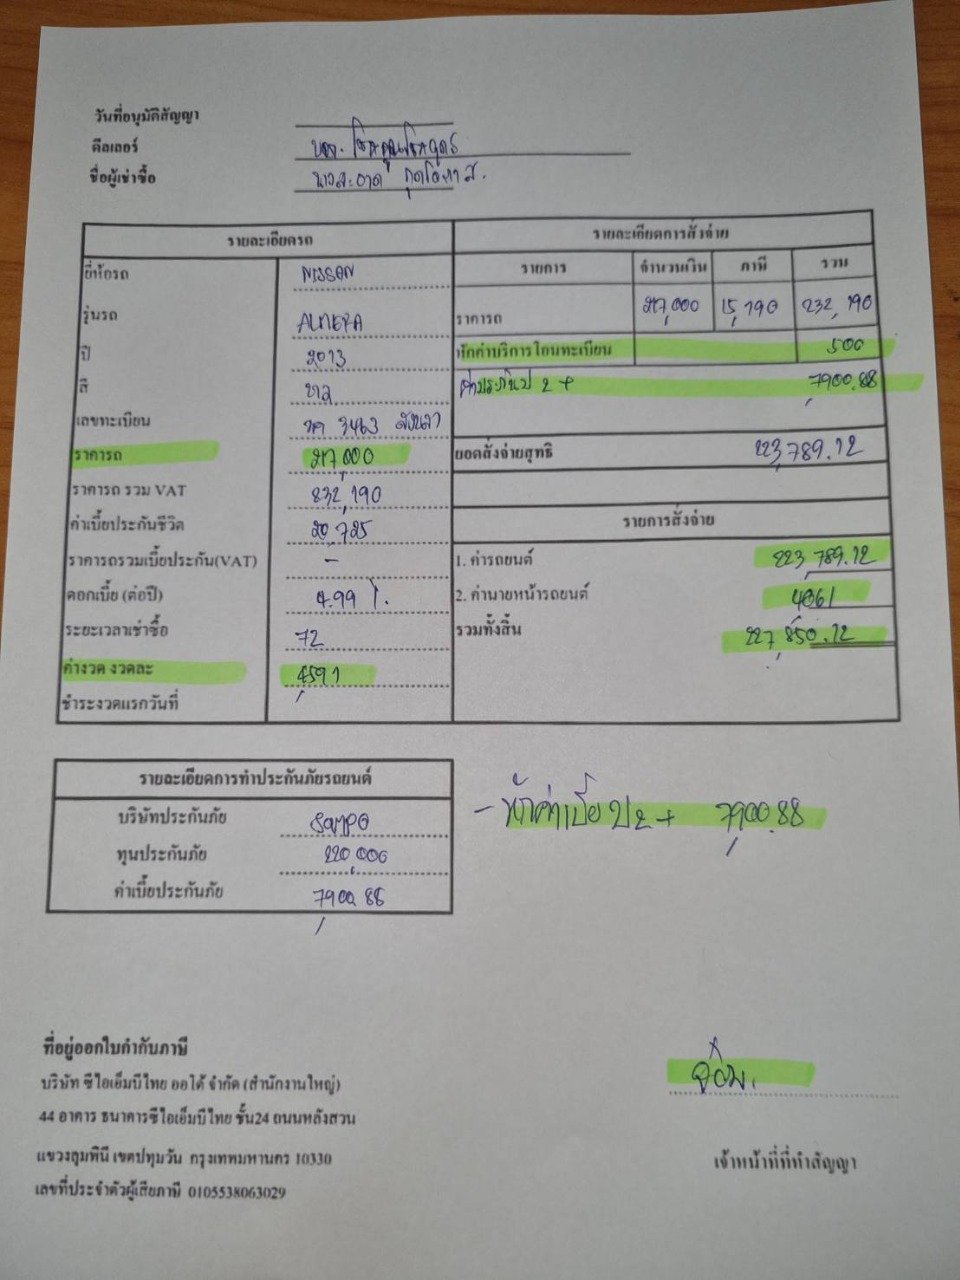 วันที่อนุมัติสัญญา
ดีลเลอร์
ชื่อผู้เช่าซื้อ
รายละเอียดรถ
ยี่ห้อรถ NISSAN
รุ่นรถ ALMERA
ปี 2013
สี ขาว
เลขทะเบียน 3463 สงขลา
ราคารถ 217,000
ราคารถ รวม VAT 232,190
ค่าเบี้ยประกันชีวิต 20,725
ราคารถรวมเบี้ยประกัน(VAT) -
ดอกเบี้ย (ต่อปี) 4.99 %.
ระยะเวลาเช่าซื้อ 72
ค่างวด งวดละ 4,591
ชำระงวดแรกวันที่
รายละเอียดการสั่งจ่าย
รายการ จำนวนเงิน ภาษี รวม
ราคารถ 217,000 15,190 232,190
หักค่าบริการโอนทะเบียน 500
ค่าประกันป 2+ 7,900.88
ยอดสั่งจ่ายสุทธิ 223,789.12
รายการสั่งจ่าย
1. ค่ารถยนต์ 223,789.12
2. ค่านายหน้ารถยนต์ 4,061
รวมทั้งสิ้น 227,850.12
รายละเอียดการทำประกันภัยรถยนต์
บริษัทประกันภัย SOMPO
ทุนประกันภัย 220,000
ค่าเบี้ยประกันภัย 7,900.88
- หักค่าเบี้ย ป2+ 7,900.88
ที่อยู่ออกใบกำกับภาษี
บริษัท ซีไอเอ็มบีไทย ออโต้ จำกัด (สำนักงานใหญ่)
44 อาคาร ธนาคารซีไอเอ็มบีไทย ชั้น24 ถนนหลังสวน
แขวงลุมพินี เขตปทุมวัน กรุงเทพมหานคร 10330
เลขที่ประจำตัวผู้เสียภาษี 0105538063029
เจ้าหน้าที่ที่ทำสัญญา